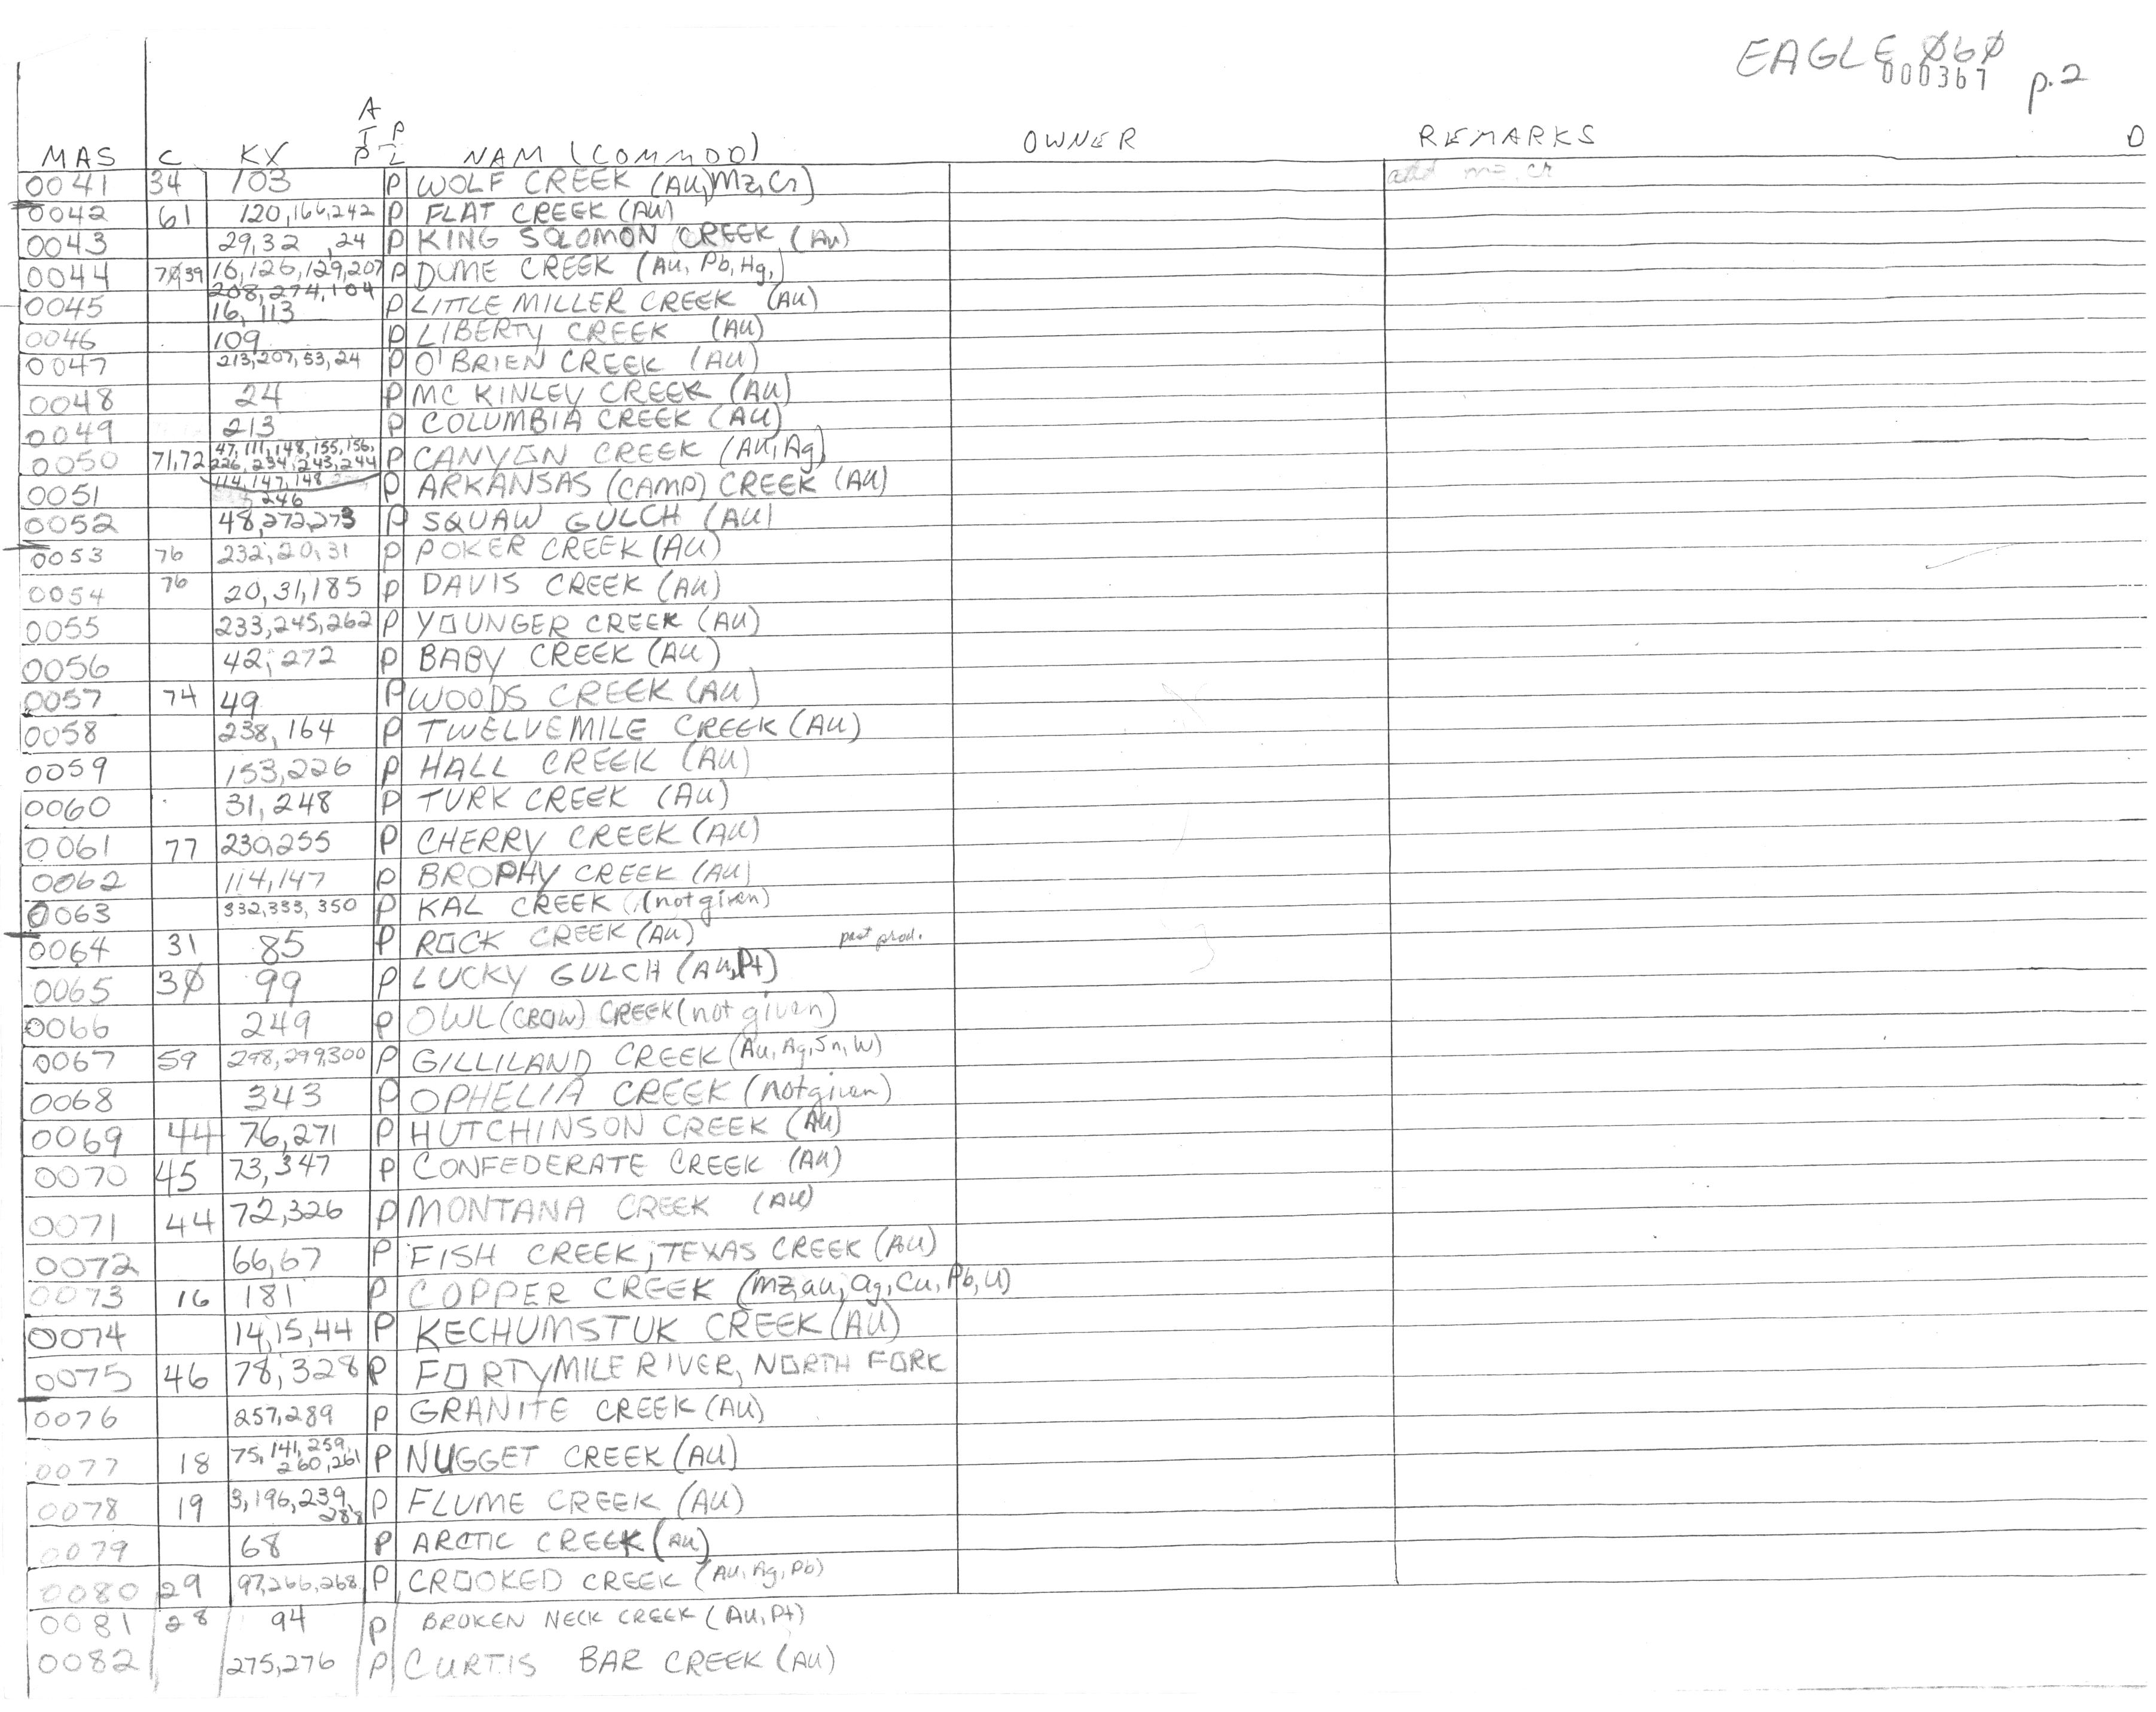 EAGLE Ø6Ø
000367 p.2
A
T P
P L
MAS C KX NAM (COMMOD) OWNER REMARKS D
0041 34 103 P WOLF CREEK (Au, Mz, Cr) add mz, cr
0042 61 120,166,242 P FLAT CREEK (Au)
0043 29,32 ,24 P KING SOLOMON CREEK (Au)
0044 7Ø39 16,126,129,207 P DOME CREEK (Au, Pb, Hg,)
208,274,104
0045 16, 113 P LITTLE MILLER CREEK (Au)
0046 109 P LIBERTY CREEK (Au)
0047 213,207,53,24 P O'BRIEN CREEK (Au)
0048 24 P MC KINLEY CREEK (Au)
0049 213 P COLUMBIA CREEK (Au)
0050 71,72 47,111,148,155,156, P CANYON CREEK (Au, Ag)
226,234,243,244
0051 114,147,148 P ARKANSAS (CAMP) CREEK (Au)
246
0052 48,272,273 P SQUAW GULCH (Au)
0053 76 232,20,31 P POKER CREEK (Au)
0054 76 20,31,185 P DAVIS CREEK (Au)
0055 233,245,262 P YOUNGER CREEK (Au)
0056 42,272 P BABY CREEK (Au)
0057 74 49 P WOODS CREEK (Au)
0058 238,164 P TWELVEMILE CREEK (Au)
0059 153,226 P HALL CREEK (Au)
0060 31,248 P TURK CREEK (Au)
0061 77 230,255 P CHERRY CREEK (Au)
0062 114,147 P BROPHY CREEK (Au)
0063 332,333,350 P KAL CREEK (not given)
0064 31 85 P ROCK CREEK (Au) past prod.
0065 3Ø 99 P LUCKY GULCH (Au, Pt)
0066 249 P OWL (CROW) CREEK (not given)
0067 59 298,299,300 P GILLILAND CREEK (Au, Ag, Sn, W)
0068 343 P OPHELIA CREEK (not given)
0069 44 76,271 P HUTCHINSON CREEK (Au)
0070 45 73,347 P CONFEDERATE CREEK (Au)
0071 44 72,326 P MONTANA CREEK (Au)
0072 66,67 P FISH CREEK; TEXAS CREEK (Au)
0073 16 181 P COPPER CREEK (Mz, au, ag, Cu, Pb, U)
0074 14,15,44 P KECHUMSTUK CREEK (Au)
0075 46 78,328 P FORTYMILE RIVER, NORTH FORK
0076 257,289 P GRANITE CREEK (Au)
0077 18 75,141,259, P NUGGET CREEK (Au)
260,261
0078 19 3,196,239, P FLUME CREEK (Au)
288
0079 68 P ARCTIC CREEK (Au)
0080 29 97,266,268 P CROOKED CREEK (Au, Ag, Pb)
0081 28 94 P BROKEN NECK CREEK (Au, Pt)
0082 275,276 P CURTIS BAR CREEK (Au)